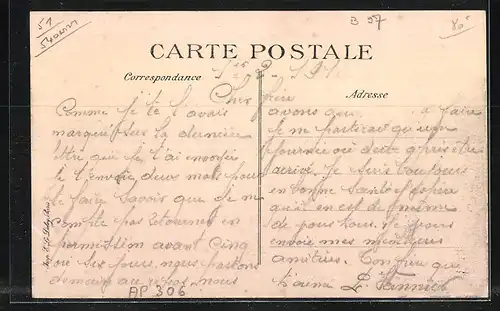 51
B 97
80
CARTE POSTALE
Correspondance
Adresse
Cher frère
Comme je te l'avais
marqué sur la dernière
lettre que je t'ai envoyée
je t'envoie deux mots pour
te faire savoir que je ne
compte pas retourner en
permission avant cinq
ou six jours, nous partons
demain au repos, nous
avons que à faire
je ne partirait qu'une
journée ou deux après être
arrivé. Je suis toujours
en bonne santé j'espère
qu'il en est de même
de pour tous. Je vous
envoie mes meilleures
amitiés. Ton frère qui
t'aime L.
AP 306